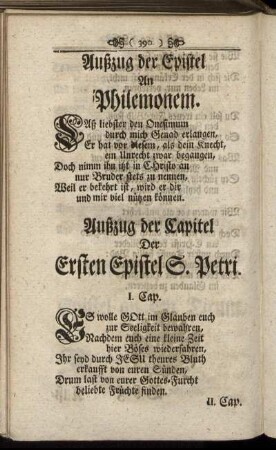 ( 390. )
Außzug der Epistel
An
Philemonem.
LAß liebster den Onesimum
durch mich Genad erlangen,
Er hat vor diesem, als dein Knecht,
ein Unrecht zwar begangen,
Doch nimm ihn itzt in Christo an
nur Bruder stets zu nennen,
Weil er bekehrt ist, wird er dir
und mir viel nützen können.
Außzug der Capitel
Der
Ersten Epistel S. Petri.
I. Cap.
ES wolle GOtt im Glauben euch
zur Seeligkeit bewahren,
Nachdem euch eine kleine Zeit
hier Böses wiederfahren,
Ihr seyd durch JESU theures Bluth
erkaufft von euren Sünden,
Drum last von eurer Gottes-Furcht
beliebte Früchte finden.
II. Cap.